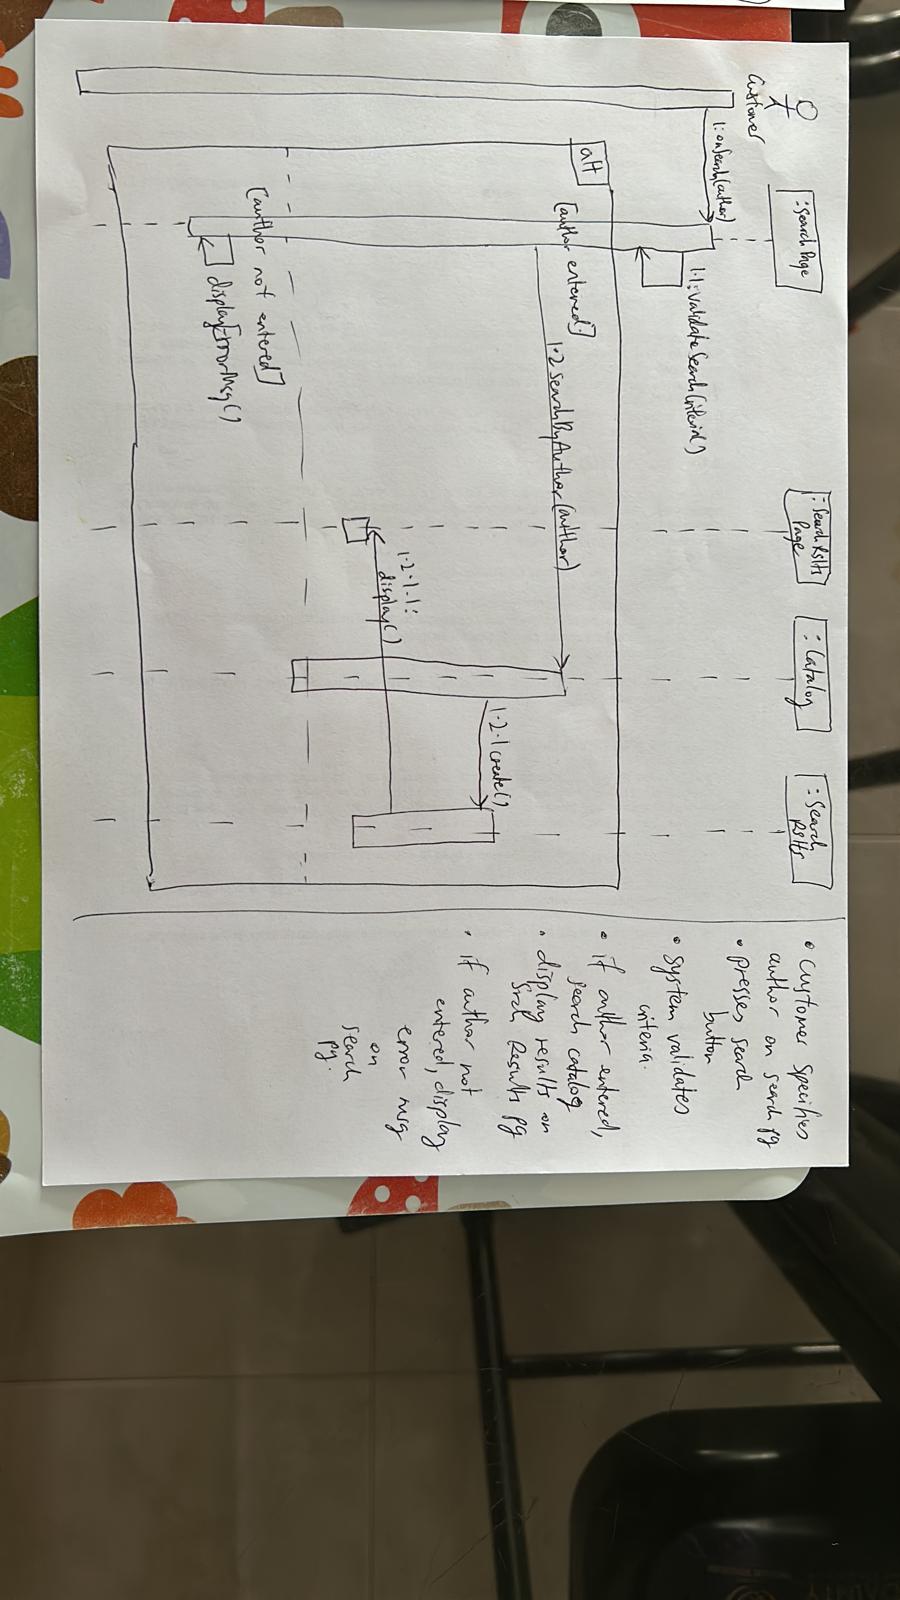 Customer
:SearchPage
:Search Rslts
Page
:Catalog
:Search
Rslts
1:onSearch(author)
1.1:validateSearchCriteria()
alt
[author entered]
1.2 searchByAuthor(author)
1.2.1 create()
1.2.1.1:
display()
[author not entered]
displayErrorMsg()
• Customer specifies
author on search pg
• presses search
button
• System validates
criteria.
• if author entered,
search catalog
• display results on
Srch Results pg
• if author not
entered, display
error msg
on
search
pg.